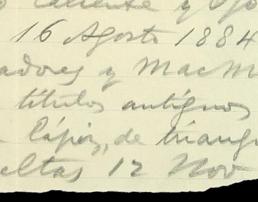 caliente y
16 Agosto 1884
adores y MacM
titulos antiguos
Lápiz, de triang
eltas 12 Nov